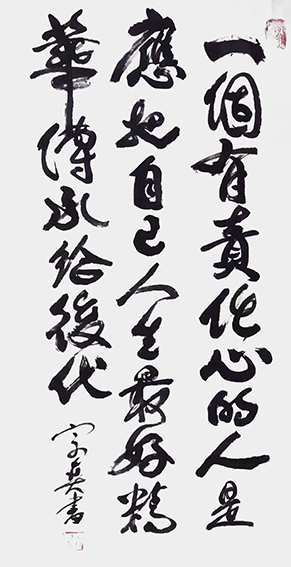 一個有責任心的人是
應把自己人生最好精
華傳承給後代
宗英書